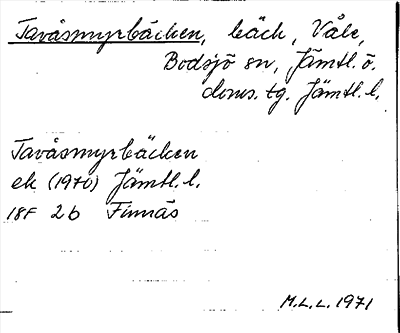 Tavåsmyrbäcken, bäck, Våle,
Bodsjö sn, Jämtl. ö.
doms. tg. Jämtl. l.
Tavåsmyrbäcken
ek (1970) Jämtl. l.
18F 2b Finnäs
M.L.L. 1971